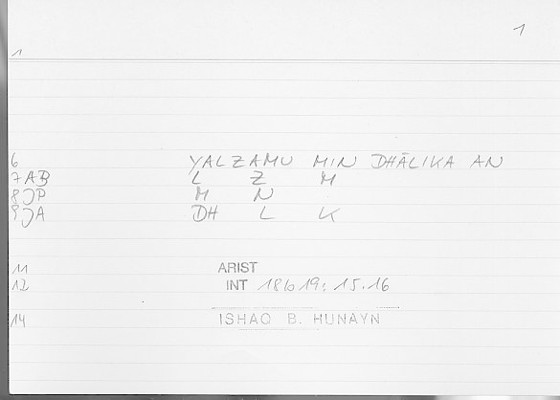 1
1
6 YALZAMU MIN DHĀLIKA AN
7 AB L Z M
8 JP M N
9 JA DH L K
11 ARIST
12 INT 18b19: 15.16
14 ISHAQ B. HUNAYN